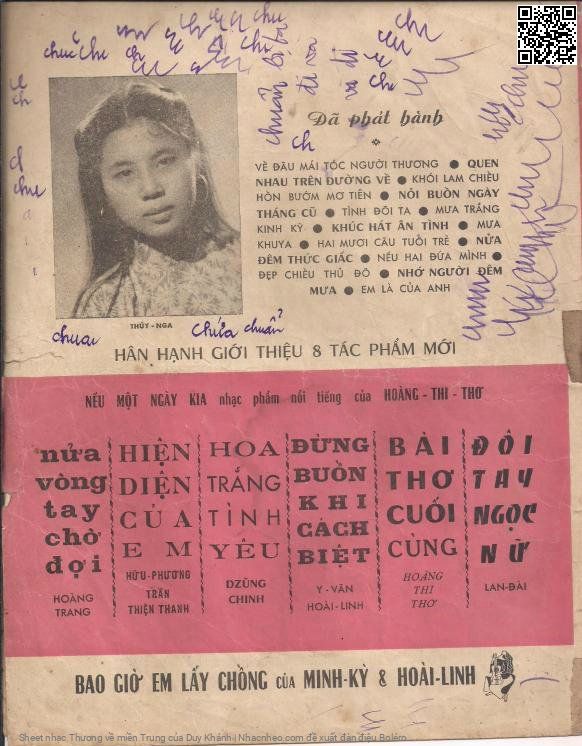 chuẩn bị ba
đi xa
và đi
chu
chu
ch
Đã phát hành
VỀ ĐÂU MÁI TÓC NGƯỜI THƯƠNG ● QUEN
NHAU TRÊN ĐƯỜNG VỀ ● KHÓI LAM CHIỀU
HỒN BƯỚM MƠ TIÊN ● NỖI BUỒN NGÀY
THÁNG CŨ ● TÌNH ĐÔI TA ● MƯA TRẮNG
KINH KỲ ● KHÚC HÁT ÂN TÌNH ● MƯA
KHUYA ● HAI MƯƠI CÂU TUỔI TRẺ ● NỬA
ĐÊM THỨC GIẤC ● NẾU HAI ĐỨA MÌNH ●
ĐẸP CHIỀU THỦ ĐÔ ● NHỚ NGƯỜI ĐÊM
MƯA ● EM LÀ CỦA ANH
THÚY - NGA
chưa chuẩn
HÂN HẠNH GIỚI THIỆU 8 TÁC PHẨM MỚI
NẾU MỘT NGÀY KIA nhạc phẩm nổi tiếng của HOÀNG - THI - THƠ
nửa
vòng
tay
chờ
đợi
HOÀNG
TRANG
HIỆN
DIỆN
CỦA
EM
HỮU-PHƯƠNG
TRẦN
THIỆN THANH
HOA
TRẮNG
TÌNH
YÊU
DZŨNG
CHINH
ĐỪNG
BUỒN
KHI
CÁCH
BIỆT
Y - VÂN
HOÀI - LINH
BÀI
THƠ
CUỐI
CÙNG
HOÀNG
THI
THƠ
ĐÔI
TAY
NGỌC
NỮ
LAN-ĐÀI
BAO GIỜ EM LẤY CHỒNG CỦA MINH-KỲ & HOÀI-LINH
Sheet nhạc Thương về miền Trung của Duy Khánh | Nhacnheo.com đề xuất đàn điệu Boléro